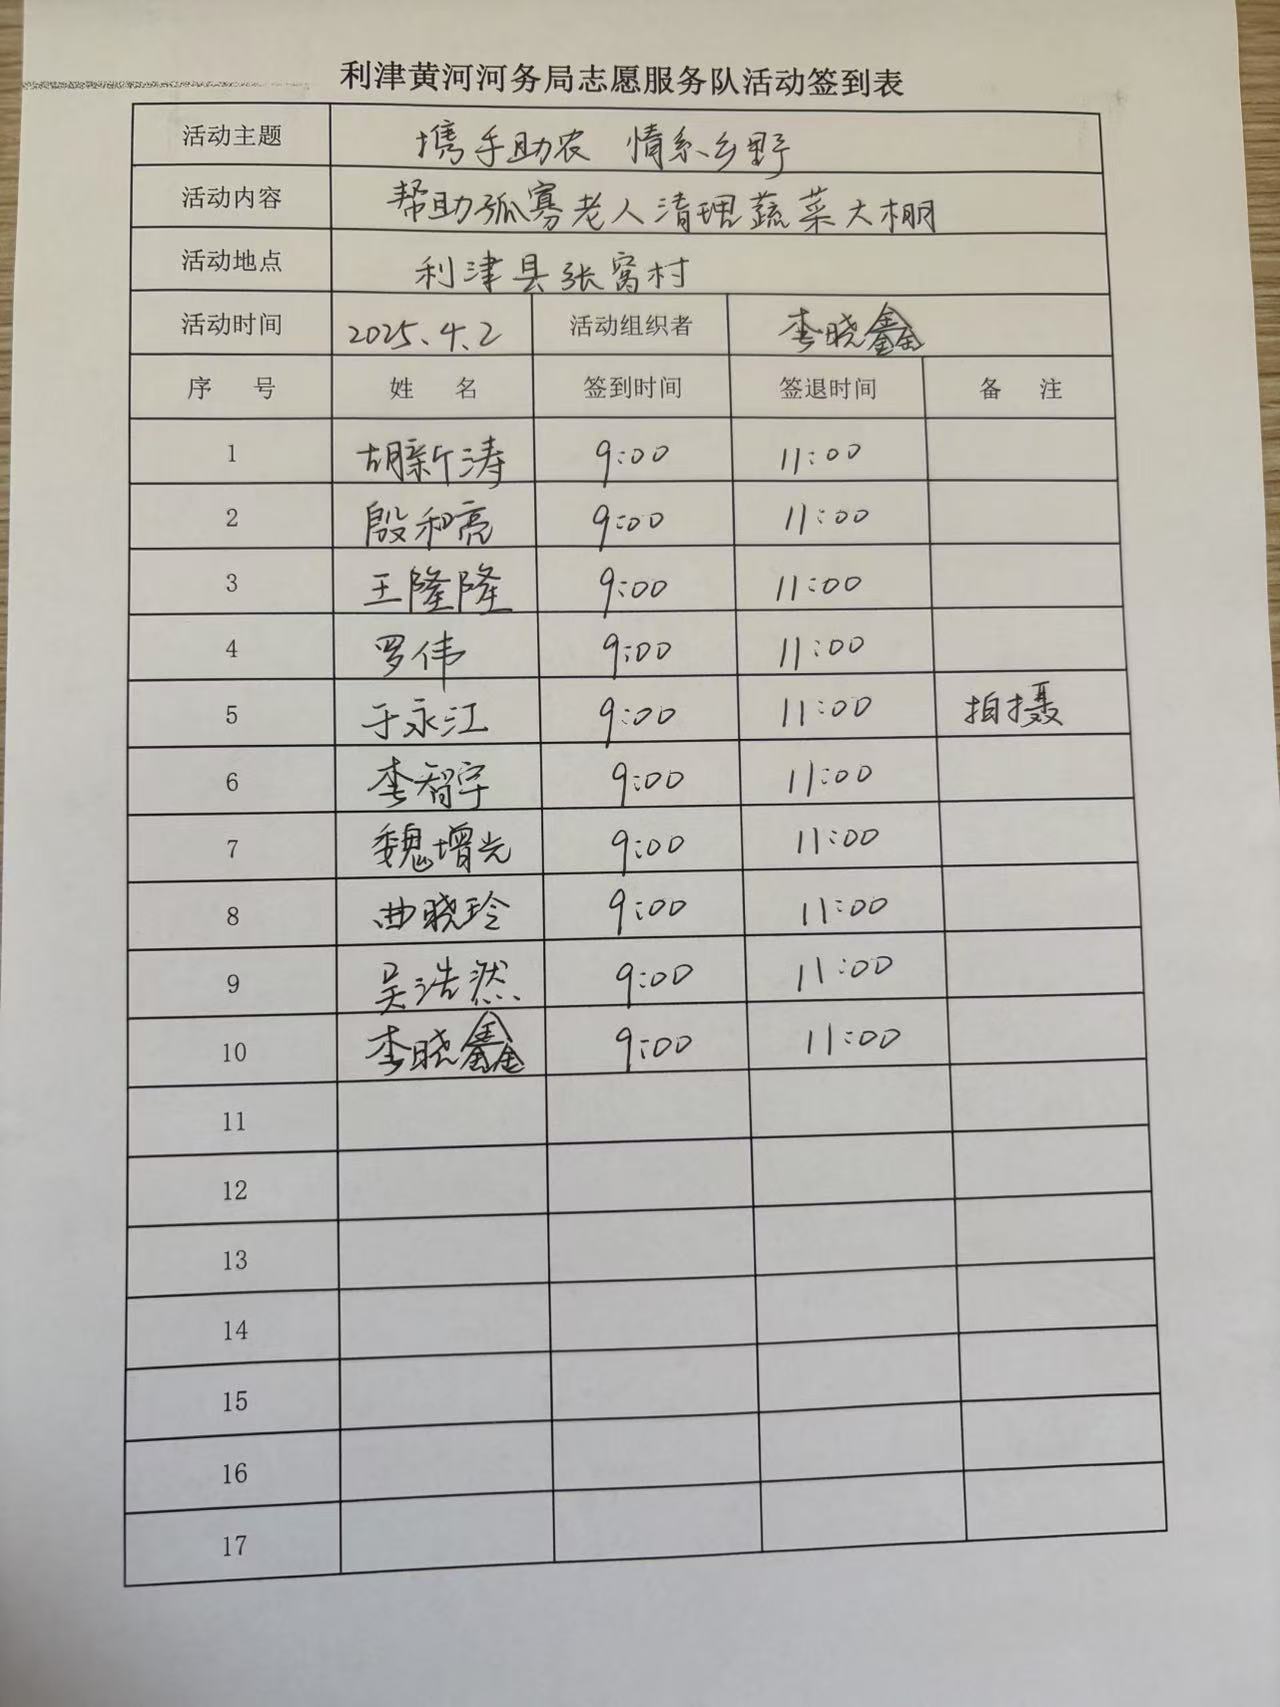 利津黄河河务局志愿服务队活动签到表
活动主题 携手助农 情系乡野
活动内容 帮助孤寡老人清理蔬菜大棚
活动地点 利津县张窝村
活动时间 2025.4.2 活动组织者 李晓鑫
序 号 姓 名 签到时间 签退时间 备 注
1 胡新涛 9:00 11:00
2 殷和亮 9:00 11:00
3 王隆隆 9:00 11:00
4 罗伟 9:00 11:00
5 于永江 9:00 11:00 拍摄
6 李智宇 9:00 11:00
7 魏增光 9:00 11:00
8 曲晓玲 9:00 11:00
9 吴浩然 9:00 11:00
10 李晓鑫 9:00 11:00
11
12
13
14
15
16
17